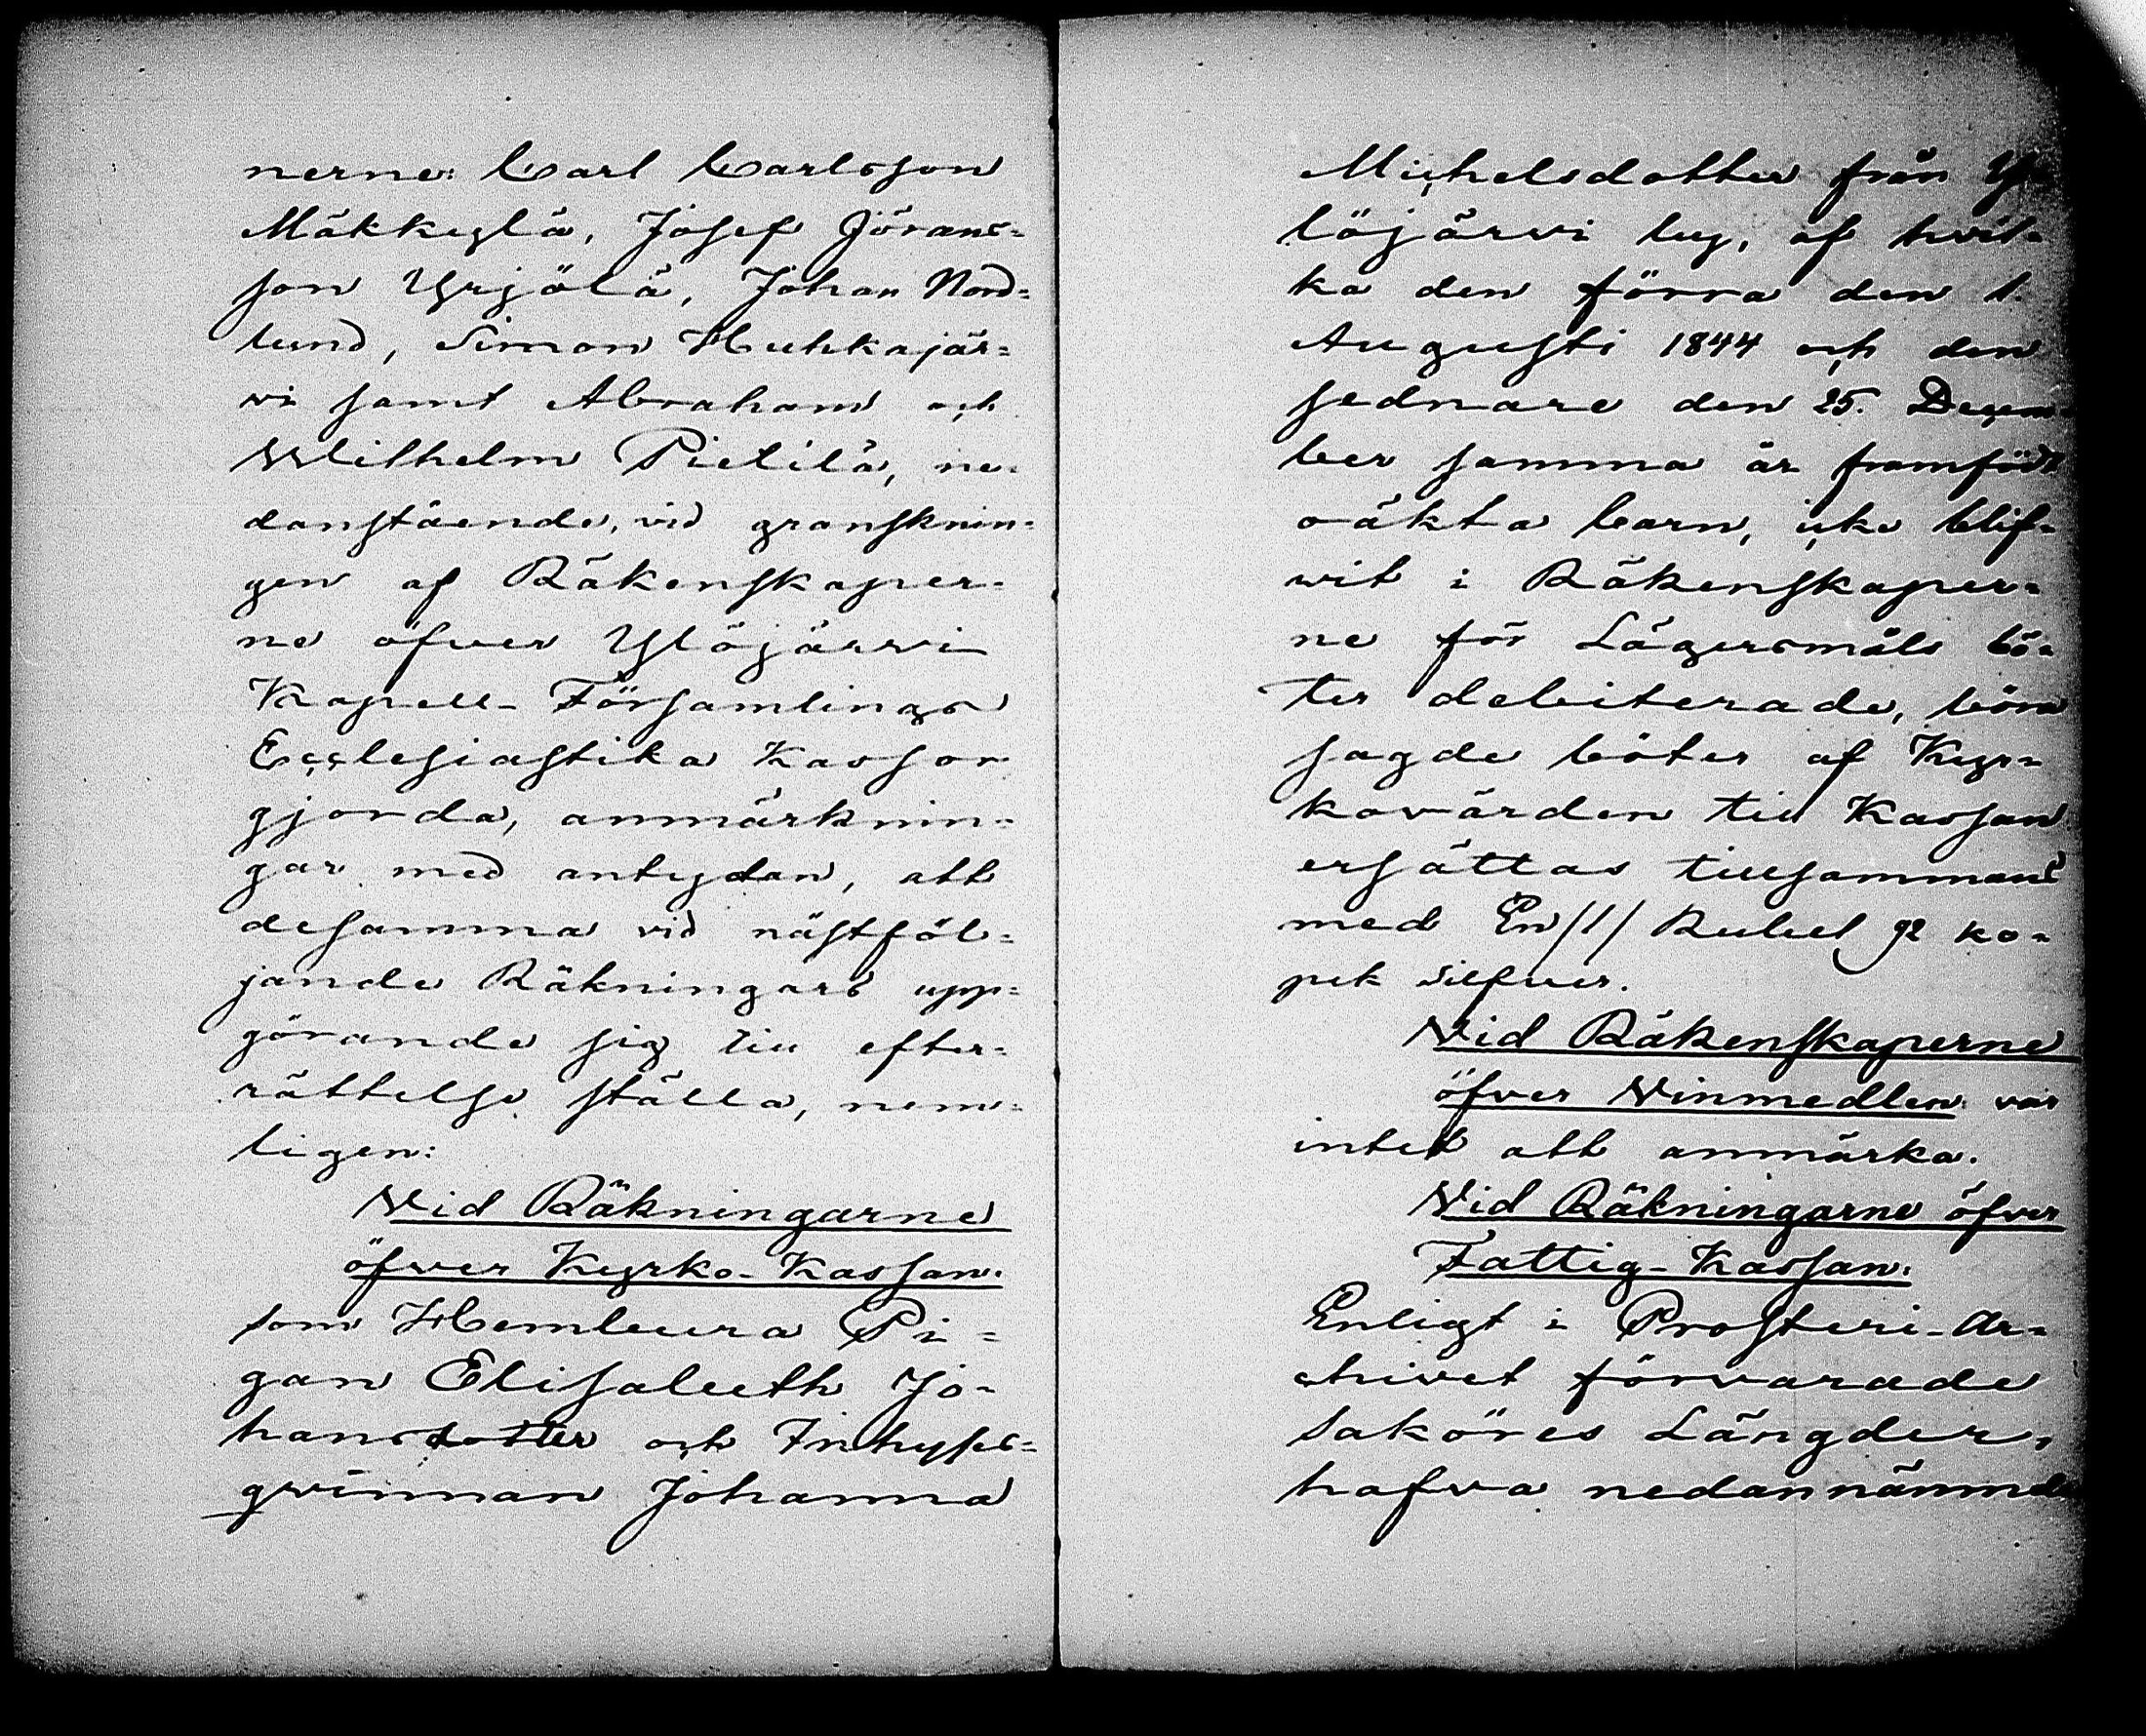 nerne: Carl Carlsson
Mäkkeylä, Josef Jörans=
son Yrjölä, Johan Nord=
lund, Simon Huhkajär=
vi samt Abraham och
Wilhelm Pietilä, ne=
danstående, vid gransknin=
gen af Räkenskaper=
ne öfver Ylöjärvi
Kapell-Församlings
Ecclesiastika Kassor
gjorda, anmärknin=
gar med antydan, att
desamma vid nästföl=
jande Räkningars upp=
görande sig till efter=
rättelse ställa, nem=
ligen:
Vid Räkningarne
öfver Kyrko-Kassan.
som Hembeura Pi=
gan Elisabeth Jo=
hansdotter och Inhyses=
qvinnan Johanna
Michelsdotter från Y=
löjärvi by, af hvil=
ka den förra den 1.
Augusti 1844 och den
sednare den 25. Decem=
ber samma år framfödt
oäkta barn, icke blif=
vit i Räkenskaper=
ne för Lägersmåls bö=
ter debiterade, böra
sagde böter af Kyr=
kovärden till Kassan
ersättas tillsammans
med En /1/ Rubel 92 ko=
pek silfver.
Vid Räkenskaperne
öfver Vinmedlen var
intet att anmärka.
Vid Räkningarne öfver
Fattig-Kassan.
Enligt i Prosteri-Ar=
chivet förvarade
saköres Längder,
hafva nedannämnde